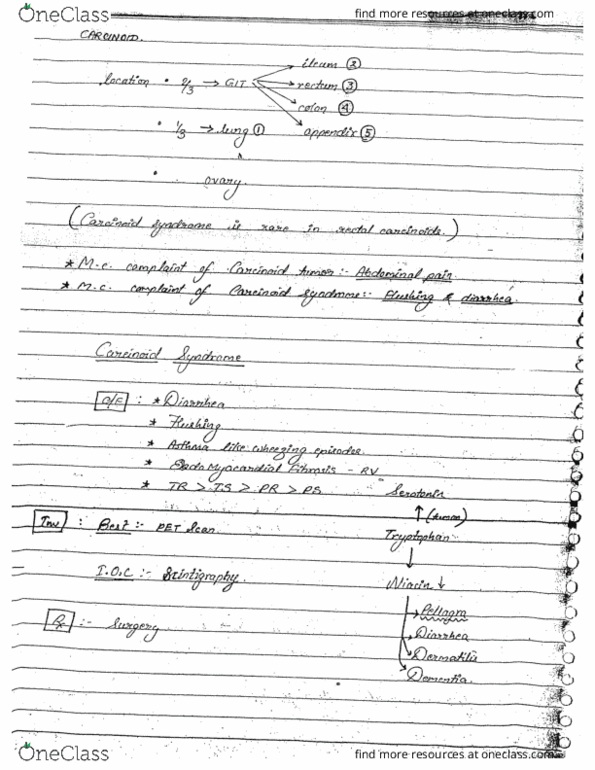 OneClass
find more resources at oneclass.com
CARCINOID.
location • 2/3 → GIT → ileum ②
→ rectum ③
→ colon ④
→ appendix ⑤
• 1/3 → lung ①
• ovary.
(Carcinoid syndrome is rare in rectal carcinoids.)
* M.c. complaint of Carcinoid tumor:- Abdominal pain.
* M.c. complaint of Carcinoid syndrome:- Flushing & diarrhea.
Carcinoid Syndrome
O/F : * Diarrhea
* Flushing
* Asthma like wheezing episodes.
* Endo Myocardial Fibrosis - RV
* TR > TS > PR > PS.
Serotonin
↑ (tumor)
Inv : Best:- PET Scan.
Tryptophan
↓
I.O.C :- Scintigraphy.
Niacin ↓
→ Pellagra
Rx :- Surgery
→ Diarrhea
→ Dermatitis
→ Dementia.
OneClass
find more resources at oneclass.com